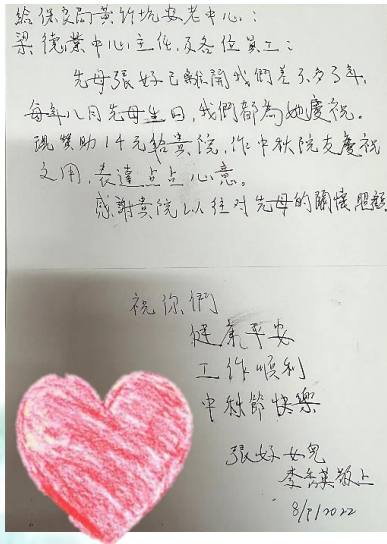 給保良局黃竹坑安老中心：
梁德業中心主任及各位員工：
先母張好已離開我們差不多了年，
每年八月先母生日，我們都為她慶祝。
現贊助1千元給貴院，作中秋院友慶祝
之用，表達点点心意。
感謝貴院以往对先母的關懷照顧
祝你們
健康平安
工作順利
中秋節快樂
張好女兒
李秀英敬上
2022